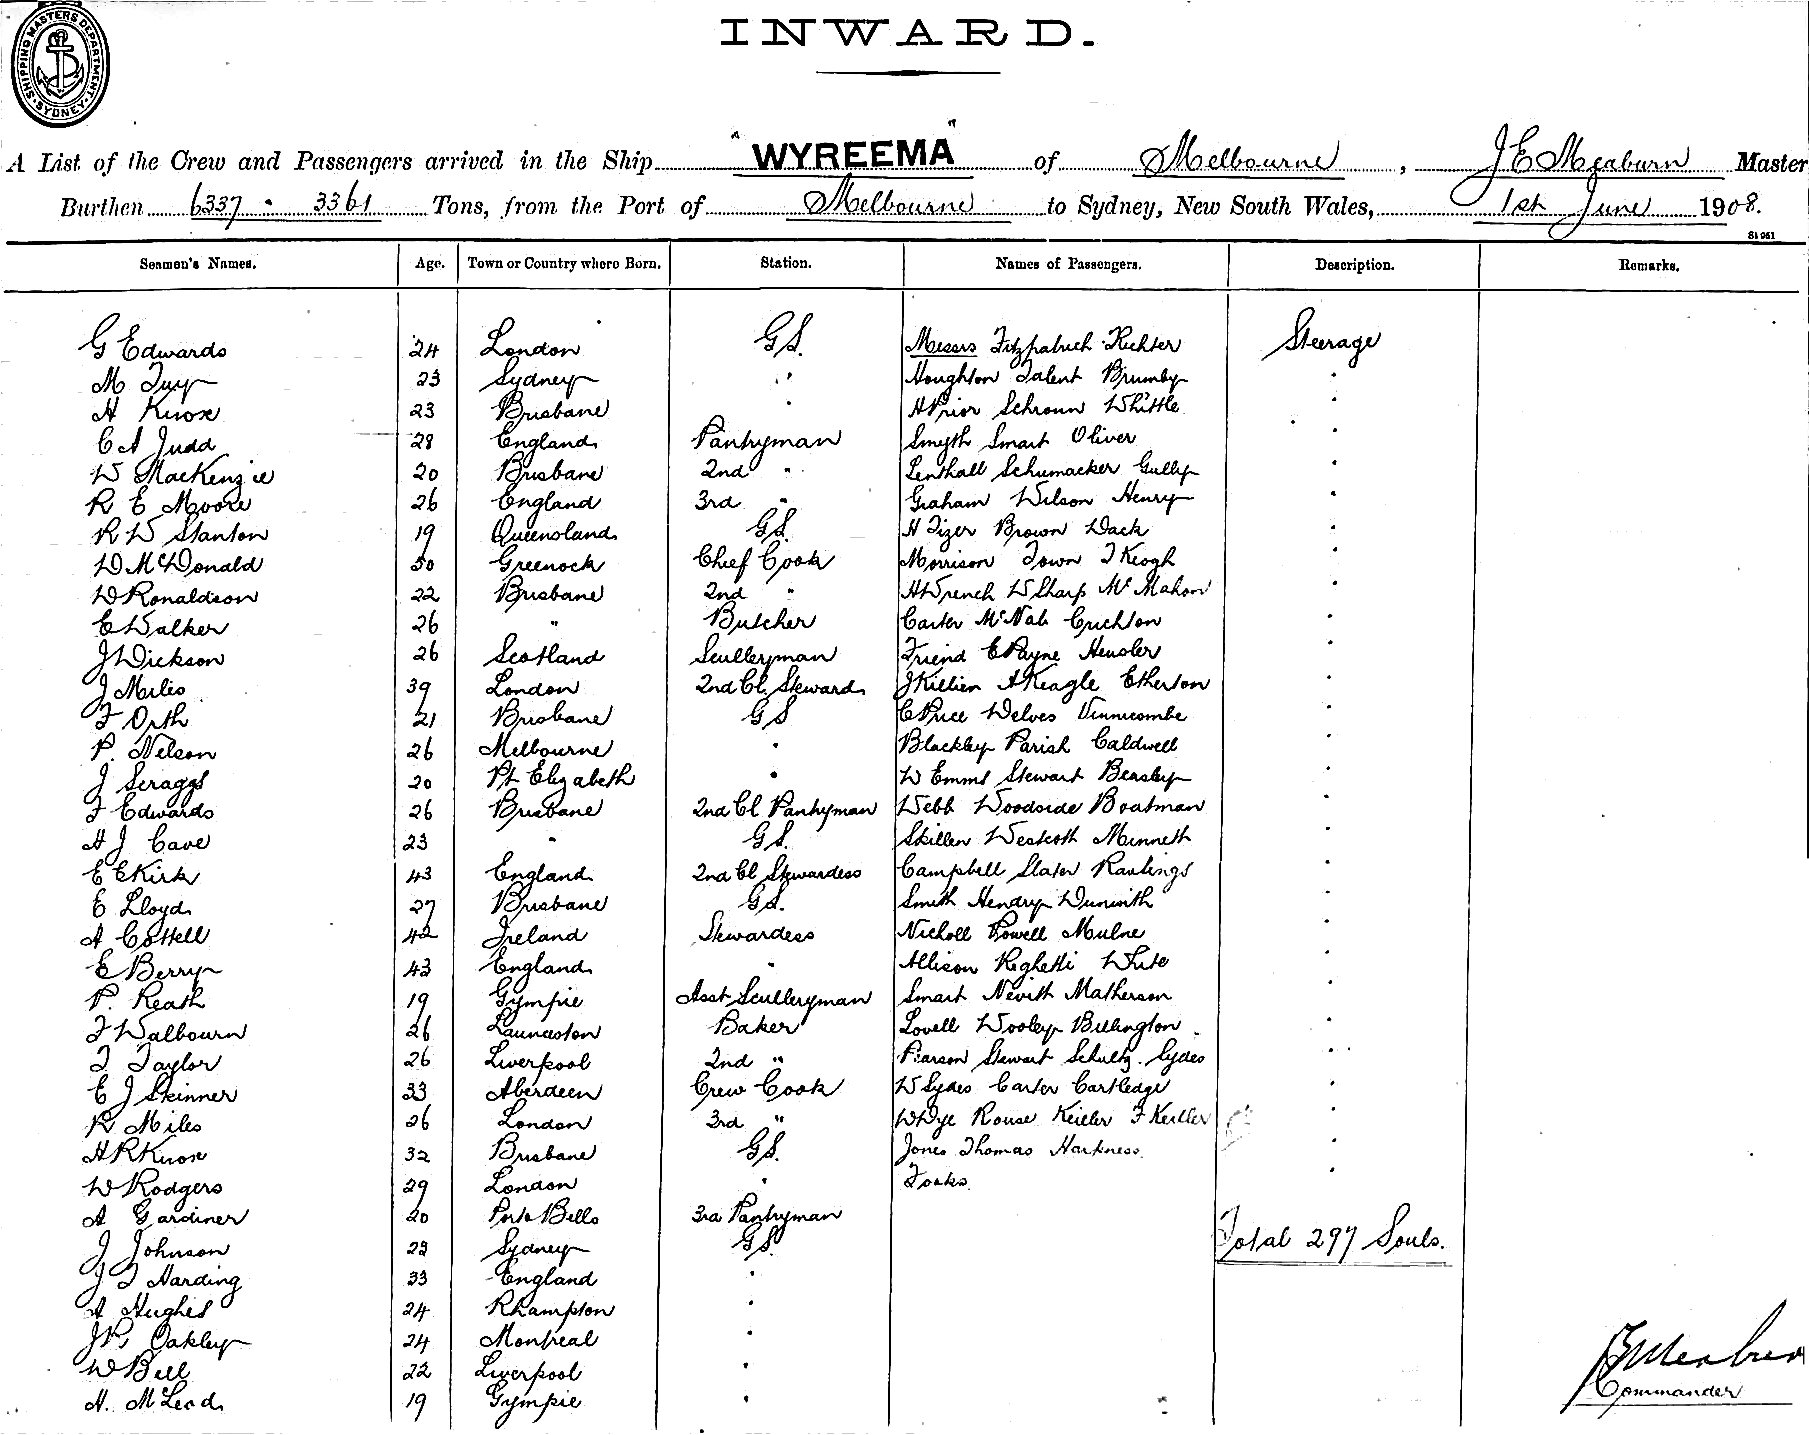 SHIPPING MASTERS DEPARTMENT. SYDNEY
INWARD.
A List of the Crew and Passengers arrived in the Ship "WYREEMA" of Melbourne, J E Meaburn Master
Burthen 6337 · 3361 Tons, from the Port of Melbourne to Sydney, New South Wales, 1st June 1908.
51951
Seamen's Names. Age. Town or Country where Born. Station. Names of Passengers. Description. Remarks.
G Edwards 24 London G.S. Messrs Fitzpatrick Richter Steerage
M Tuy 23 Sydney " Houghton Talent Brumby "
H Knox 23 Brisbane " H Prior Schroun Whittle "
C A Judd 28 England Pantryman Smyth Smart Oliver "
W MacKenzie 20 Brisbane 2nd " Lenthall Schumacker Gully "
R E Moore 26 England 3rd " Graham Wilson Henry "
R W Stanton 19 Queensland G.S. H Tizer Brown Wack "
W McDonald 50 Greenock Chief Cook Morrison Town T Keogh "
W Ronaldson 22 Brisbane 2nd " H Wrench W Sharp McMahon "
E Walker 26 " Butcher Carter McNab Crichton "
J Dickson 26 Scotland Sculleryman Friend E Payne Hensler "
J Miles 39 London 2nd Cl. Steward J Killien A Keagle Etherton "
F Orth 21 Brisbane G S C Price Welves Vinnicombe "
P. Nelson 26 Melbourne " Blackley Parish Caldwell "
J Scraggs 20 Pt Elizabeth " W Emms Stewart Beasley "
F Edwards 26 Brisbane 2nd Cl Pantryman Webb Woodside Boatman "
H J Cave 23 " G.S. Skillen Westcott Minneth "
E E Kirk 43 England 2nd Cl Stewardess Campbell Slater Rawlings "
E Lloyd 27 Brisbane G.S. Smith Hendry "
A Cottell 42 Ireland Stewardess Nicholl Powell Mulne "
E Berry 43 England " Allison Righetti White "
P. Reath 19 Gympie Asst Sculleryman Smart Nevitt Matherson "
F Walbourn 26 Launceston Baker Lovell Wooley Billington "
T Taylor 26 Liverpool 2nd " Pearson Stewart Schultz. Sydes "
E J Skinner 33 Aberdeen Crew Cook W Sydes Carter Cartledge "
R Miles 26 London 3rd " W Dye Rouse Keiller F Keiller "
H R Knox 32 Brisbane G.S. Jones Thomas Harkness. "
W Rodgers 29 London " Fooks. "
A Gardiner 20 Porto Bello 3rd Pantryman
J Johnson 28 Sydney G.S. Total 297 Souls.
J T Harding 33 England "
A Hughes 24 Rhampton "
J R Oakley 24 Montreal "
W Bell 22 Liverpool "
H. McLeod 19 Gympie "
J E Meaburn
Commander